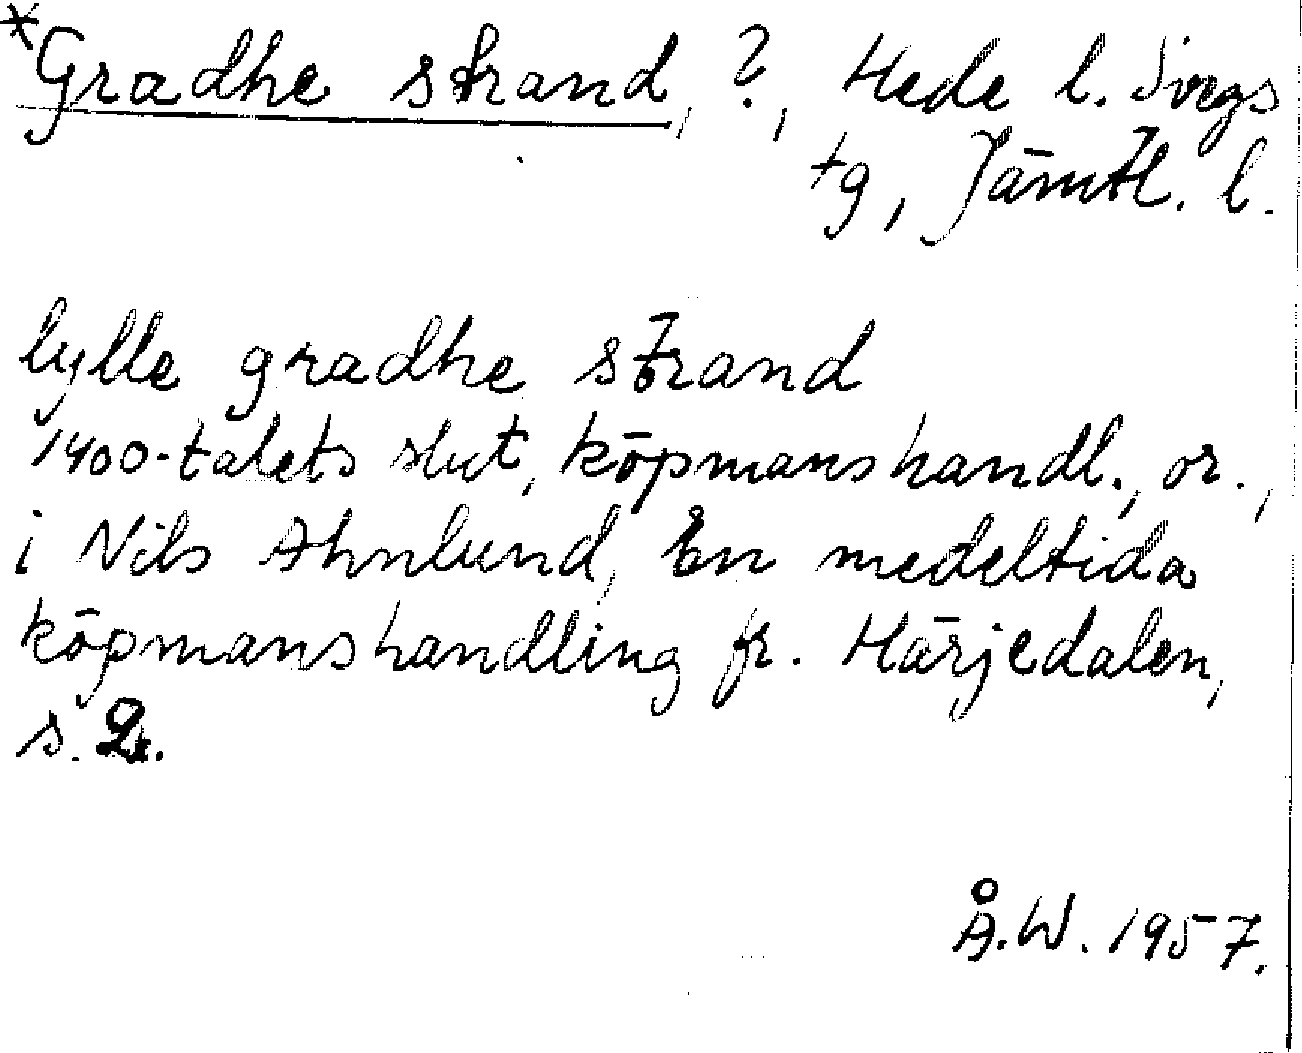 *Gradhe strand, ?, Hede l. Svegs
tg, Jämtl. l.
lylle gradhe strand
1400-talets slut, köpmanshandl., or.,
i Nils Ahnlund, En medeltida
köpmanshandling fr. Härjedalen,
s. 2.
Å.W. 1957.